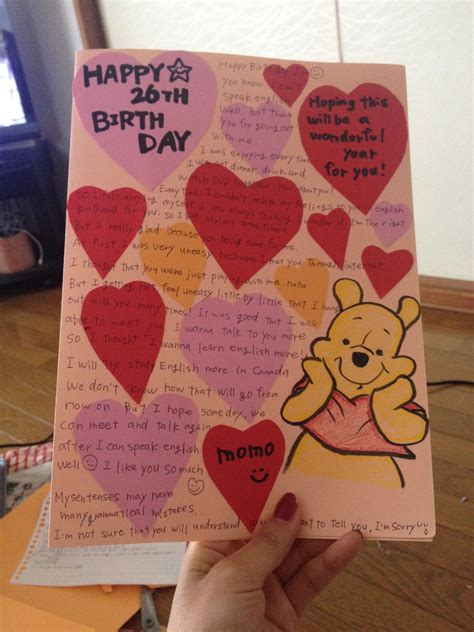 HAPPY
26TH
BIRTH
DAY
Hoping this
will be a
wonderful
year
for you!
Happy Birthday
you know I can't
speak english
well. But thank
you for going out
with me.
I was enjoying every time
got dinner, drink and
Watch DVD together. How about you!
Every time, I couldn't relate my feelings to you english
So I felt annying myself. I was always thinking I wonder if I'm the right
girlfriend for you. So I got anxious sometimes
But I really glad because you being there for me.
At first I was very uneasy because I met you through internet
I thought that you were just play with me. haha
But I getting not feel uneasy little by little that I hang
out with you many times! It was good that I was
able to meet you. I wanna talk to you more
So I thought I wanna learn english more!
I will try study English more in Canada
We don't know how that will go from
now on But I hope someday, we
can meet and talk again
after I can speak english
well I like you so much
momo
My sentenses may have
many grammatical mistakes.
I'm not sure that you will understand want to tell you, I'm sorry